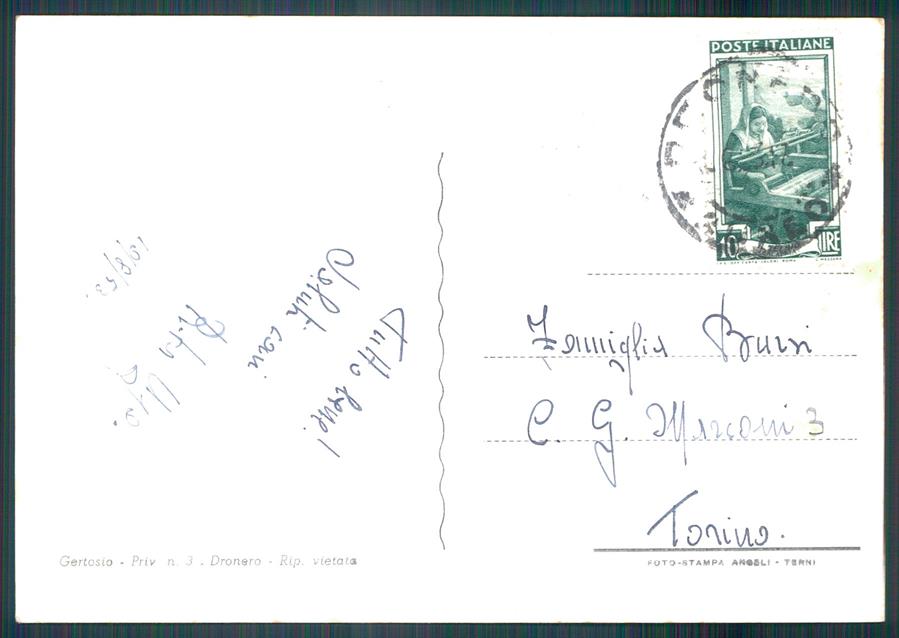 POSTE ITALIANE
10 LIRE
Tutto bene!
Saluti cari
Rita
Ugo.
10/8/53.
Famiglia Burzi
C. G. Marconi 3
Torino.
Gertosio - Priv n. 3 . Dronero - Rip. vietata
FOTO-STAMPA ANGELI - TERNI